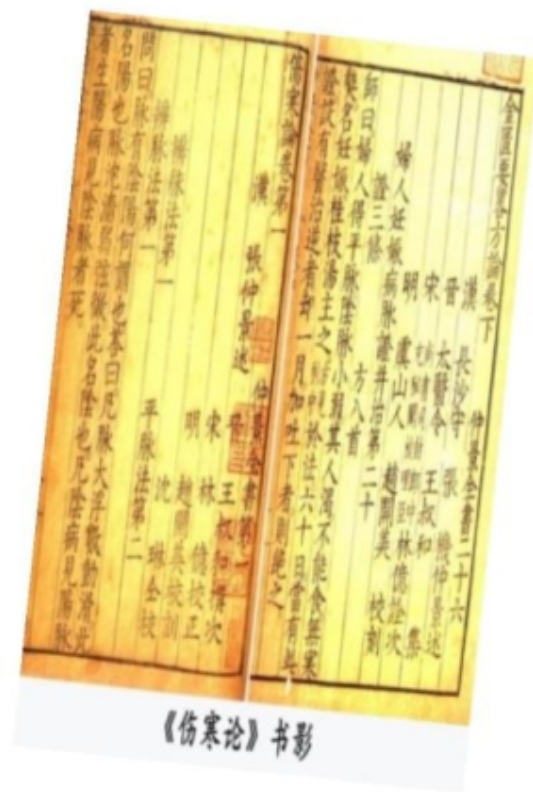 金匱要畧方論卷下 仲景全書二十六
漢 長沙守 張 機仲景述
晉 太醫令 王叔和 集
宋 林億詮次
明 虞山人 趙開美 校刻
婦人妊娠病脉證并治第二十
證三條 方八首
師曰婦人得平脉陰脉小弱其人渴不能食無寒
熱名妊娠桂枝湯主之 於法六十日當有此
證設有醫治逆者却一月加吐下者則絶之
傷寒論卷第一 仲景全書第一
漢 張仲景述
晉 王叔和撰次
宋 林 億校正
明 趙開美校刻
沈 琳仝校
辨脉法第一 平脉法第二
辨脉法第一
問曰脉有陰陽何謂也荅曰凡脉大浮數動滑此
名陽也脉沈濇弱弦微此名陰也凡陰病見陽脉
者生陽病見陰脉者死
《伤寒论》书影